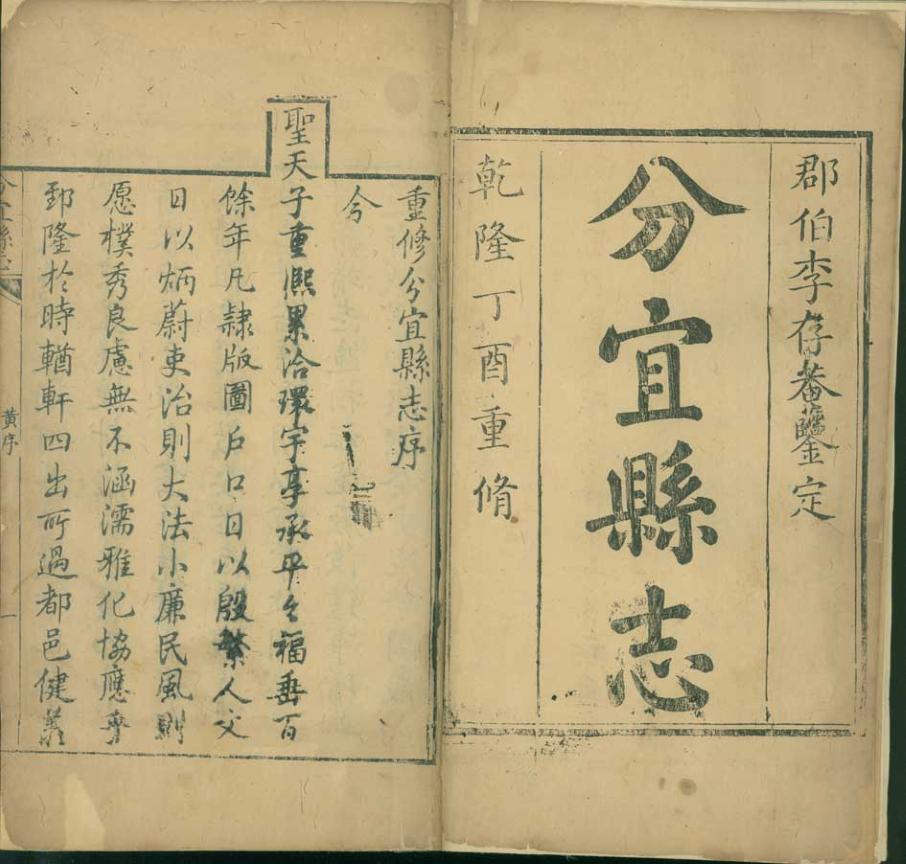 郡伯李存菴鑒定
分宜縣志
乾隆丁酉重脩
重修分宜縣志序
今
聖天子重熙累洽環宇享承平之福垂百
餘年凡隷版圖戶口日以殷繁人文
日以炳蔚吏治則大法小廉民風則
愿樸秀良慮無不涵濡雅化協應
郅隆於時輶軒四出所過都邑健
分宜縣志
黃序
一